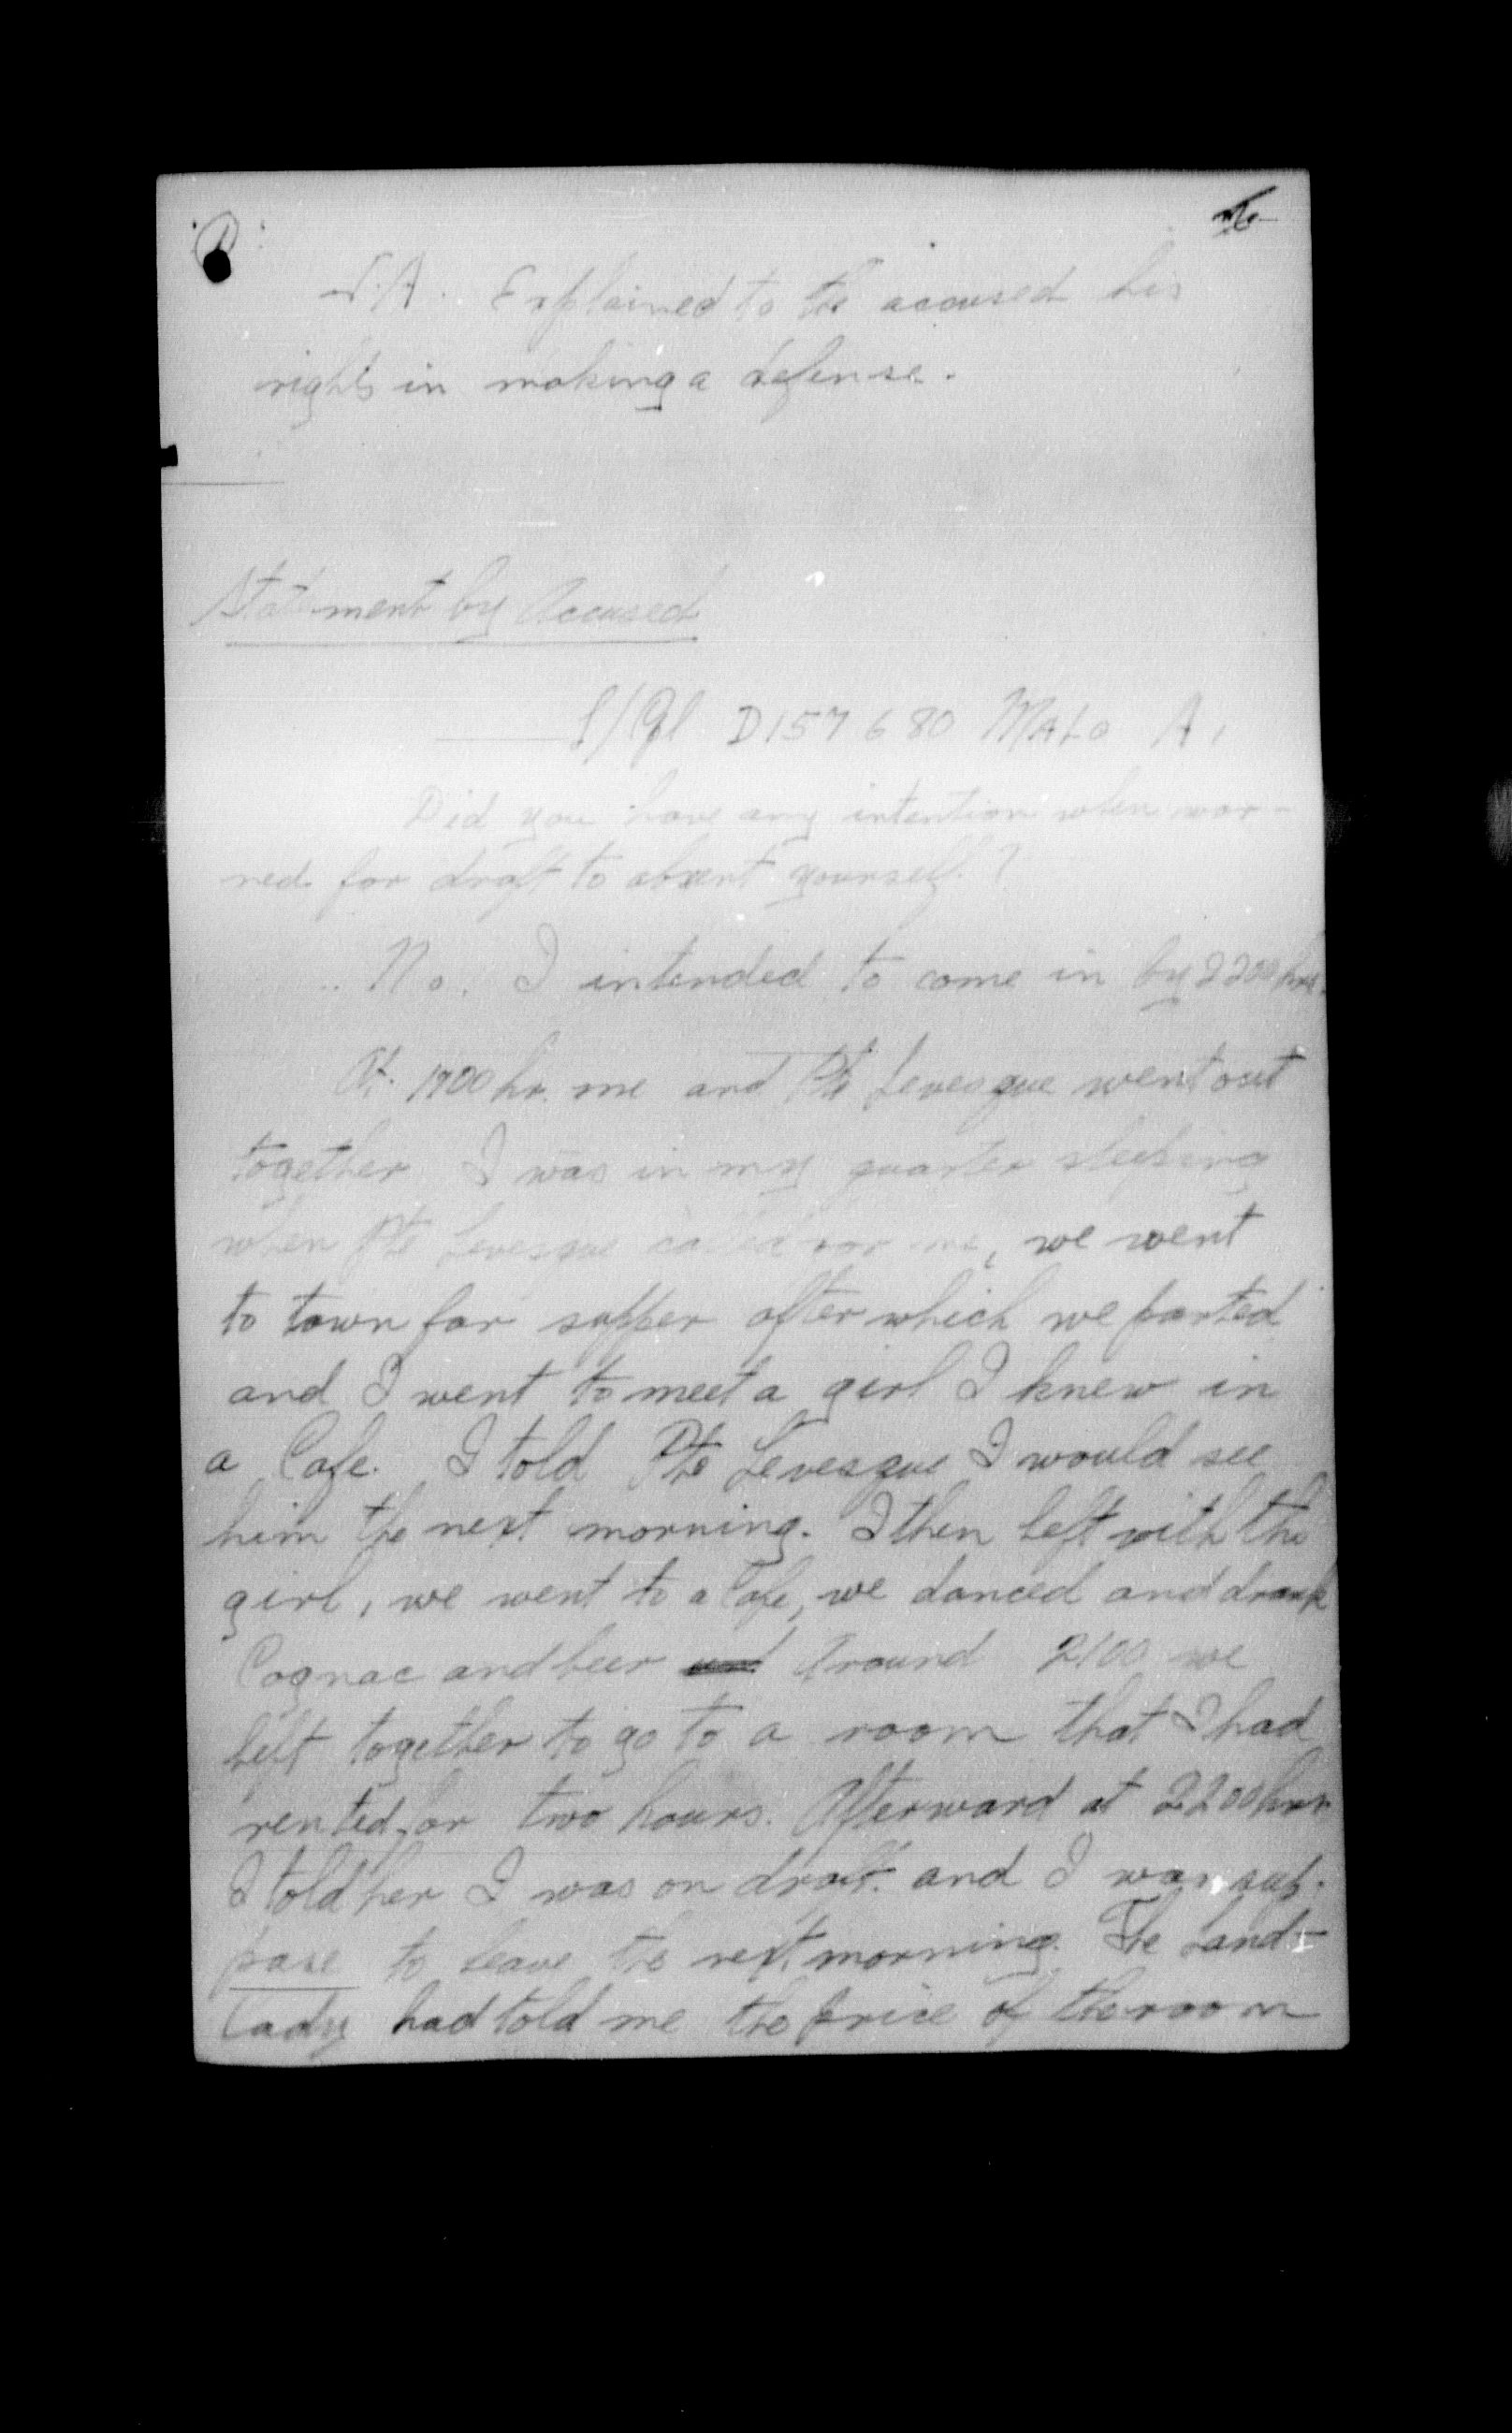 J.A. Explained to the accused his
rights in making a defense.
Statement by Accused
L/Cpl D157680 MALO A,
Did you have any intention when war-
ned for draft to absent yourself?
No. I intended to come in by 2200 hrs.
At. 1900 hr. me and Pte Levesque went out
together I was in my quarter sleeping
when Pte Levesque called for me, we went
to town for supper after which we parted
and I went to meet a girl I knew in
a Cafe. I told Pte Levesque I would see
him the next morning. I then left with the
girl, we went to a Cafe, we danced and drank
Cognac and beer Around 2100 we
left together to go to a room that I had
rented for two hours. Afterward at 2200 hrs
I told her I was on draft. and I was sup-
pose to leave the next morning. The Land-
lady had told me the price of the room